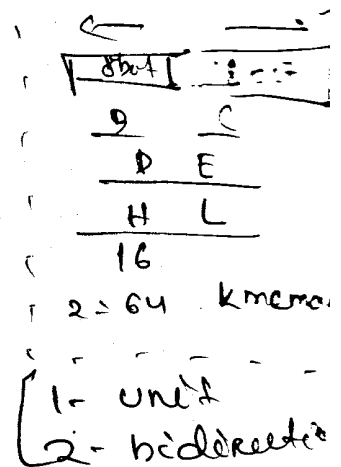 8bit
D E
H L
16
2 = 64 kmemo
1- unit
2- bidirectio